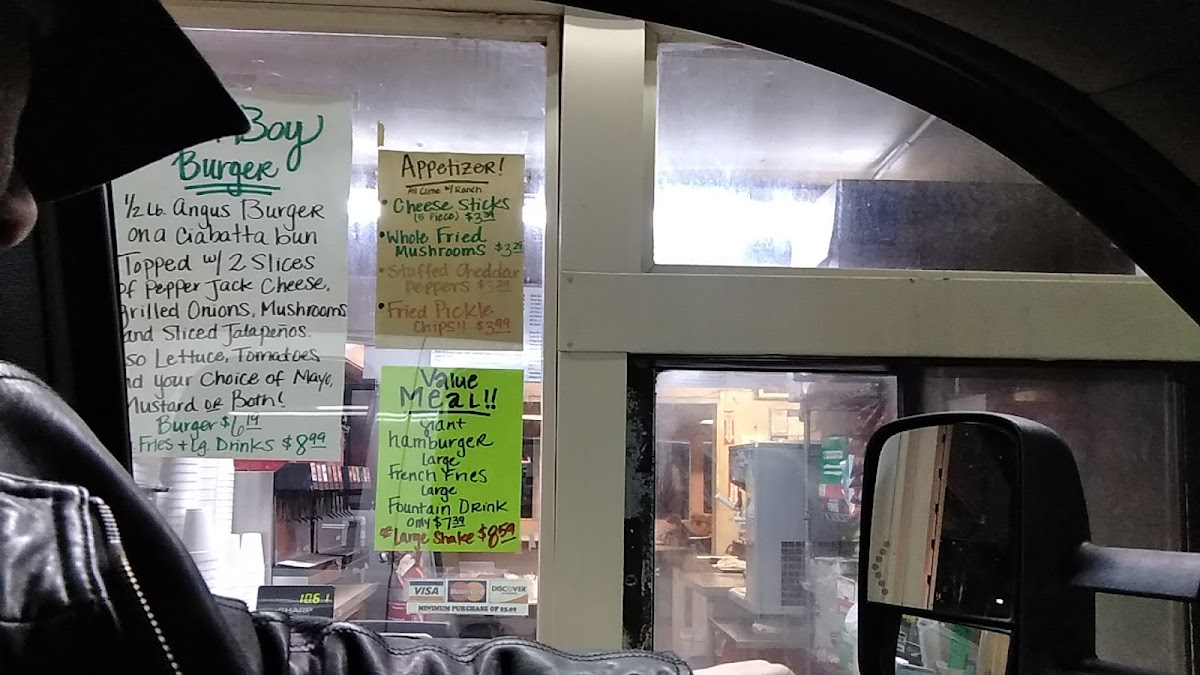 Boy
Burger
1/2 Lb. Angus Burger
on a Ciabatta bun
Topped w/ 2 Slices
of Pepper Jack Cheese,
grilled Onions, Mushrooms
and Sliced Jalapeños.
so Lettuce, Tomatoes,
nd your Choice of Mayo,
Mustard or Both!
Burger $6.19
Fries + Lg. Drinks $8.99
Appetizer!
All Come w/ Ranch
• Cheese Sticks
(5 Piece) $3.39
• Whole Fried
Mushrooms $3.29
• Stuffed Cheddar
Peppers $3.29
• Fried Pickle
Chips!! $3.99
Value
Meal!!
Giant
hamburger
Large
French Fries
Large
Fountain Drink
only $7.39
or Large Shake $8.59
VISA MasterCard DISCOVER
MINIMUM PURCHASE OF $5.00
1061
SHARP